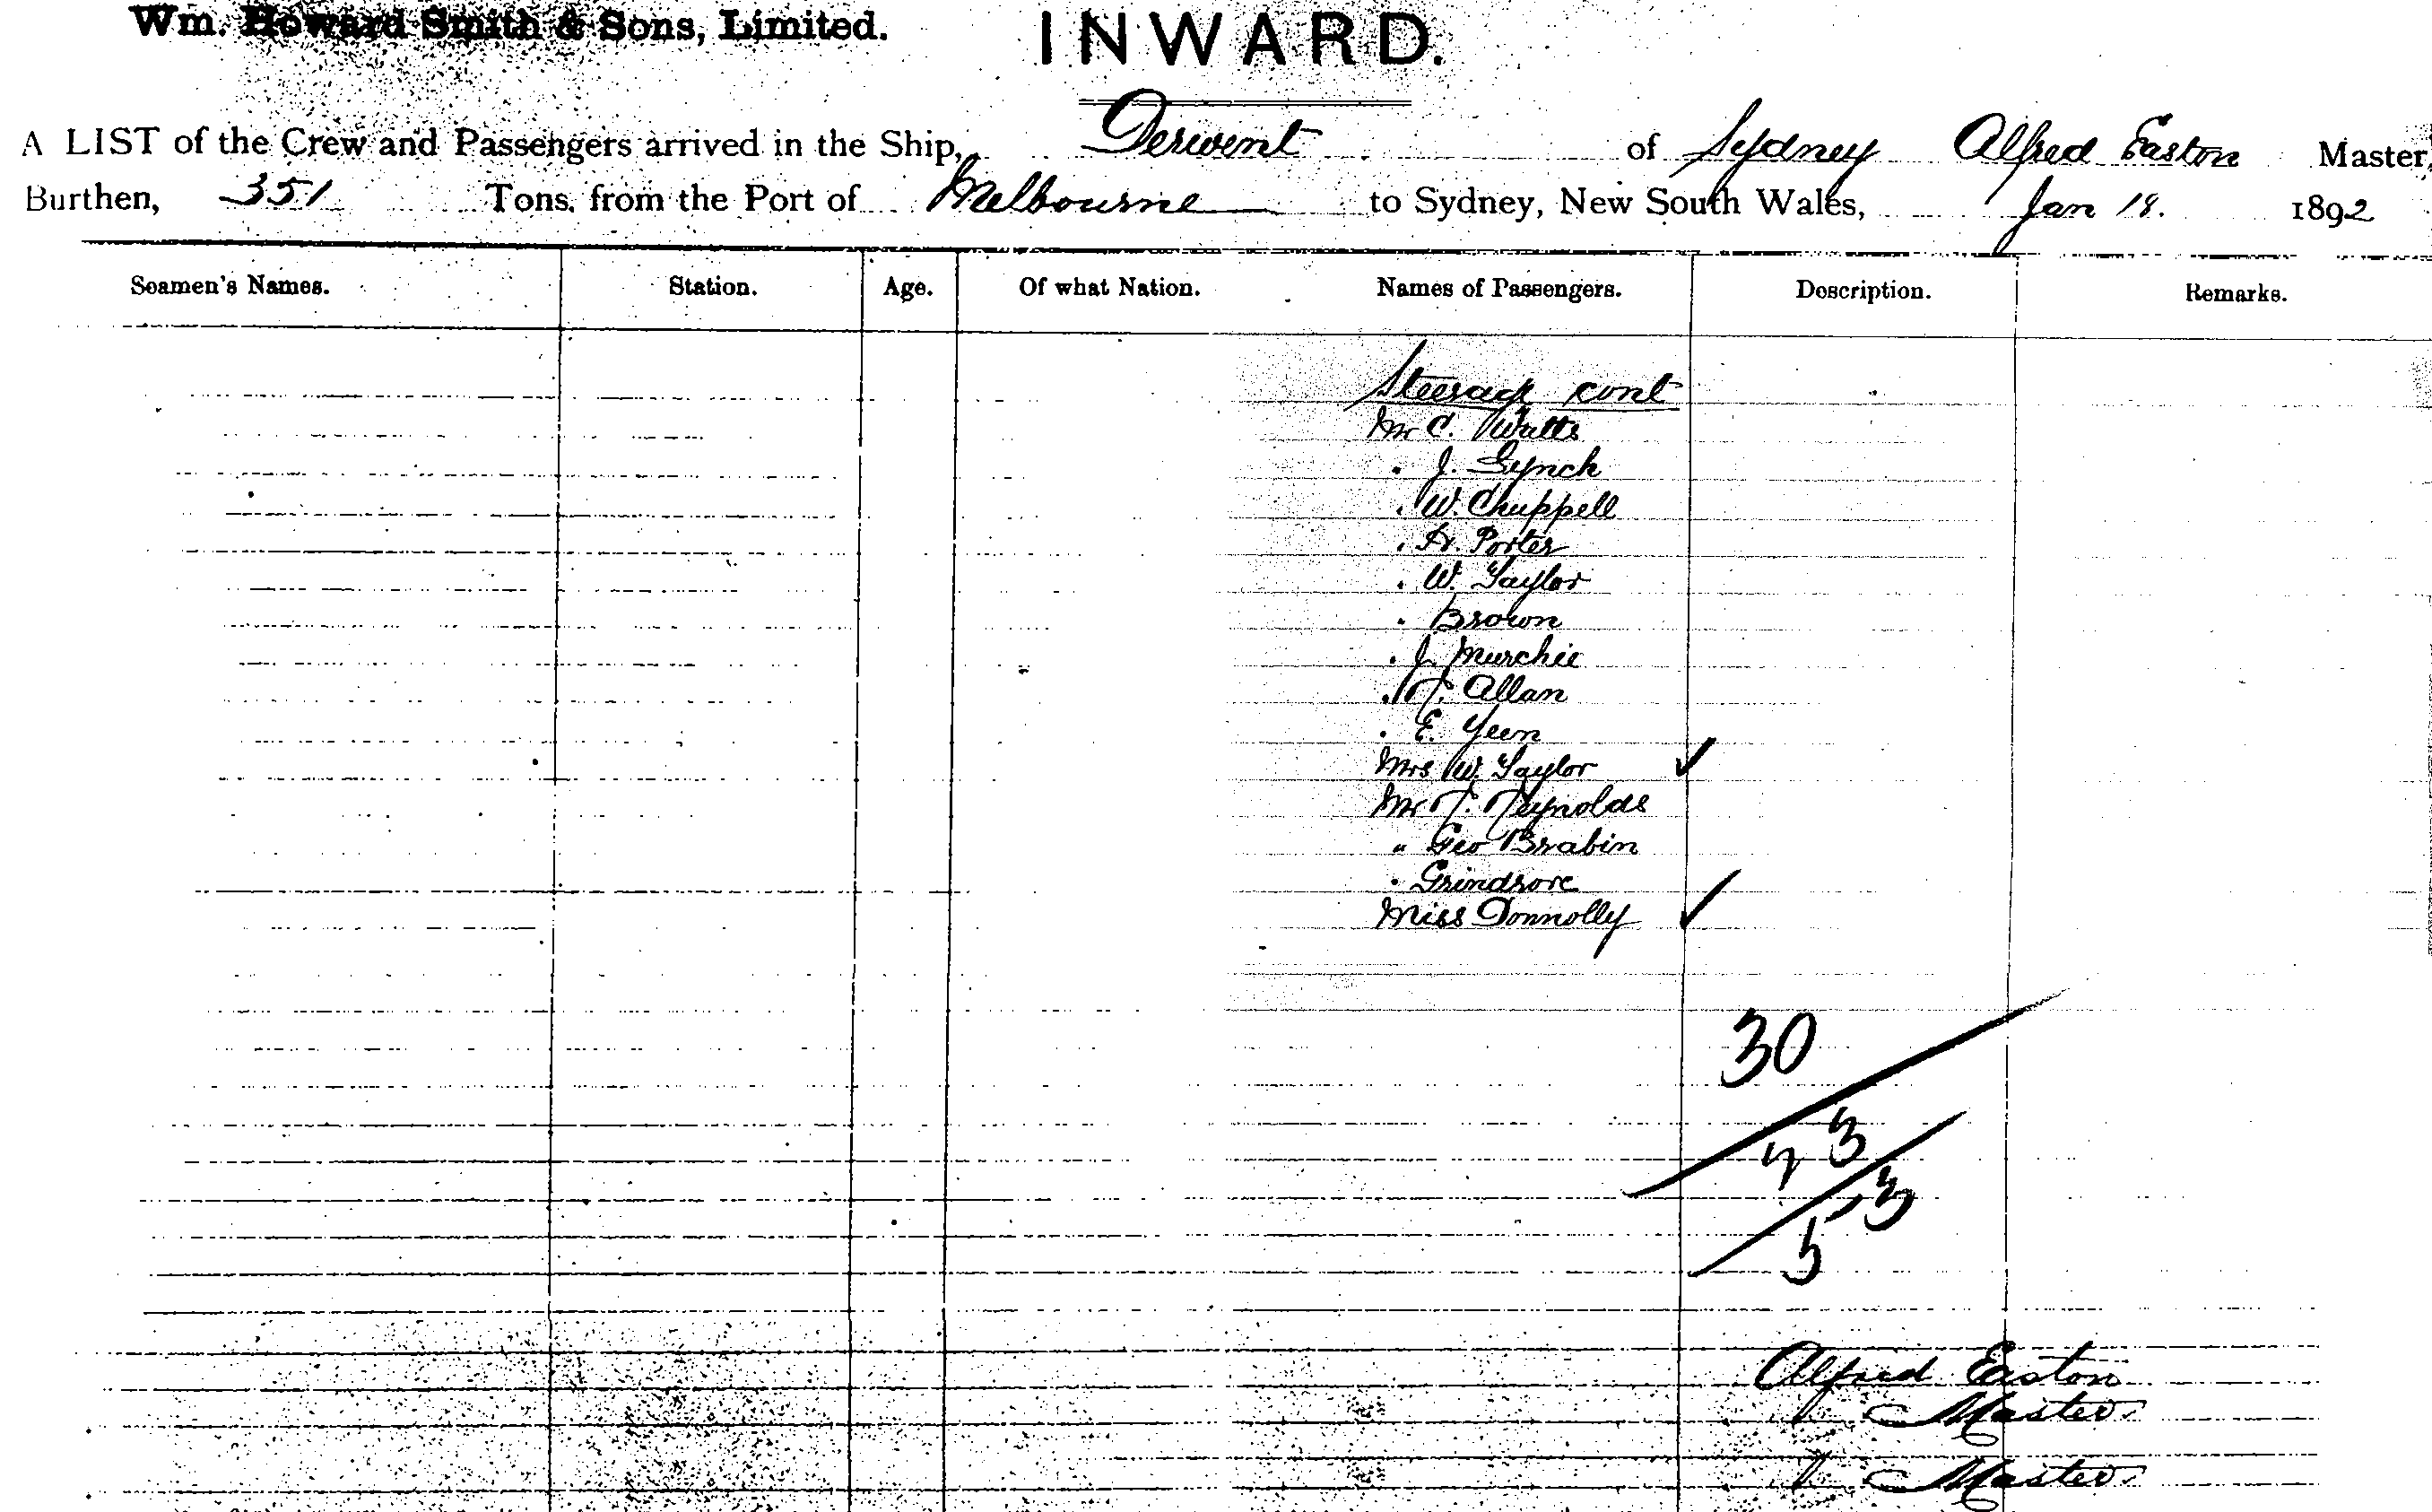 Wm. Howard Smith & Sons, Limited.
INWARD.
A LIST of the Crew and Passengers arrived in the Ship, Derwent of Sydney Alfred Easton Master,
Burthen, 351 Tons, from the Port of Melbourne to Sydney, New South Wales, Jan 18. 1892
Seamen's Names. Station. Age. Of what Nation. Names of Passengers. Description. Remarks.
Steerage cont
Mr C. Watts
. J. Lynch
. W. Chappell
. Porter
. W. Taylor
. Brown
. J. Murchie
. Allan
. E. Yeen
Mrs W. Taylor ✓
Mr Reynolds
" Geo Brabin
. Grindrore
Miss Donnolly ✓
30
3
3
5
Alfred Easton
Master
Master